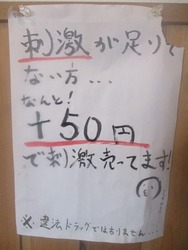 刺激が足りて
ない方...
なんと!
+50円
で刺激売ってます!
※違法ドラッグではありません...